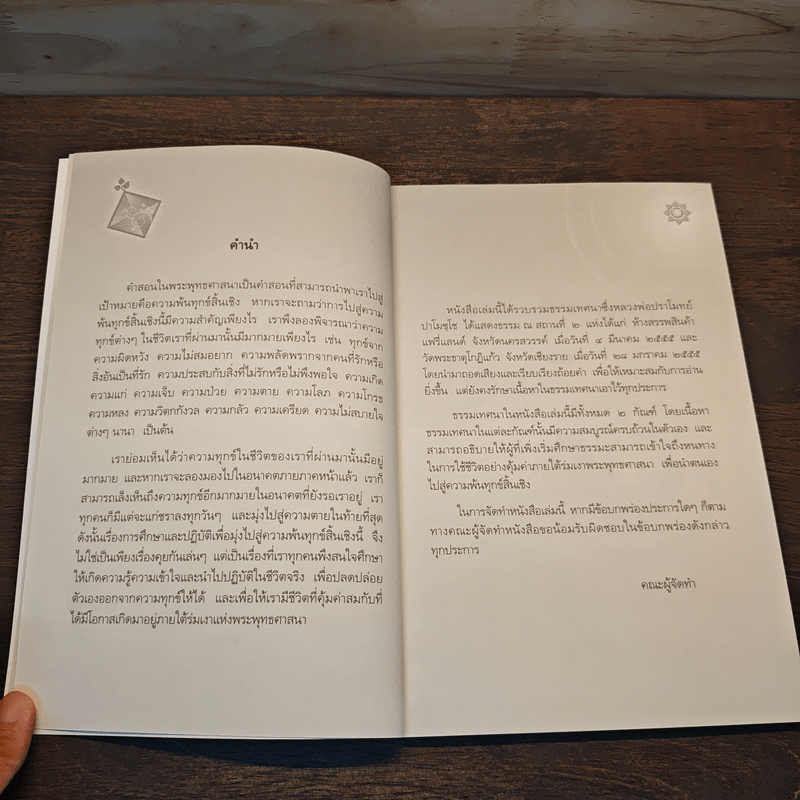 คำนำ
คำสอนในพระพุทธศาสนาเป็นคำสอนที่สามารถนำพาเราไปสู่
เป้าหมายคือความพ้นทุกข์สิ้นเชิง หากเราจะถามว่าการไปสู่ความ
พ้นทุกข์สิ้นเชิงนี้มีความสำคัญเพียงไร เราพึงลองพิจารณาว่าความ
ทุกข์ต่างๆ ในชีวิตเราที่ผ่านมานั้นมีมากมายเพียงไร เช่น ทุกข์จาก
ความผิดหวัง ความไม่สมอยาก ความพลัดพรากจากคนที่รักหรือ
สิ่งอันเป็นที่รัก ความประสบกับสิ่งที่ไม่รักหรือไม่พึงพอใจ ความเกิด
ความแก่ ความเจ็บ ความป่วย ความตาย ความโลภ ความโกรธ
ความหลง ความวิตกกังวล ความกลัว ความเครียด ความไม่สบายใจ
ต่างๆ นานา เป็นต้น
เราย่อมเห็นได้ว่าความทุกข์ในชีวิตของเราที่ผ่านมานั้นมีอยู่
มากมาย และหากเราจะลองมองไปในอนาคตภายภาคหน้าแล้ว เราก็
สามารถเล็งเห็นถึงความทุกข์อีกมากมายในอนาคตที่ยังรอเราอยู่ เรา
ทุกคนก็มีแต่จะแก่ชราลงทุกวันๆ และมุ่งไปสู่ความตายในท้ายที่สุด
ดังนั้นเรื่องการศึกษาและปฏิบัติเพื่อมุ่งไปสู่ความพ้นทุกข์สิ้นเชิงนี้ จึง
ไม่ใช่เป็นเพียงเรื่องคุยกันเล่นๆ แต่เป็นเรื่องที่เราทุกคนพึงสนใจศึกษา
ให้เกิดความรู้ความเข้าใจและนำไปปฏิบัติในชีวิตจริง เพื่อปลดปล่อย
ตัวเองออกจากความทุกข์ให้ได้ และเพื่อให้เรามีชีวิตที่คุ้มค่าสมกับที่
ได้มีโอกาสเกิดมาอยู่ภายใต้ร่มเงาแห่งพระพุทธศาสนา
หนังสือเล่มนี้ได้รวบรวมธรรมเทศนาซึ่งหลวงพ่อปราโมทย์
ปาโมชฺโช ได้แสดงธรรม ณ สถานที่ ๒ แห่งได้แก่ ห้างสรรพสินค้า
แฟรี่แลนด์ จังหวัดนครสวรรค์ เมื่อวันที่ ๔ มีนาคม ๒๕๕๕ และ
วัดพระธาตุโกฏิแก้ว จังหวัดเชียงราย เมื่อวันที่ ๒๘ มกราคม ๒๕๕๕
โดยนำมาถอดเสียงและเรียบเรียงถ้อยคำ เพื่อให้เหมาะสมกับการอ่าน
ยิ่งขึ้น แต่ยังคงรักษาเนื้อหาในธรรมเทศนาเอาไว้ทุกประการ
ธรรมเทศนาในหนังสือเล่มนี้มีทั้งหมด ๒ กัณฑ์ โดยเนื้อหา
ธรรมเทศนาในแต่ละกัณฑ์นั้นมีความสมบูรณ์ครบถ้วนในตัวเอง และ
สามารถอธิบายให้ผู้ที่เพิ่งเริ่มศึกษาธรรมะสามารถเข้าใจถึงหนทาง
ในการใช้ชีวิตอย่างคุ้มค่าภายใต้ร่มเงาพระพุทธศาสนา เพื่อนำตนเอง
ไปสู่ความพ้นทุกข์สิ้นเชิง
ในการจัดทำหนังสือเล่มนี้ หากมีข้อบกพร่องประการใดๆ ก็ตาม
ทางคณะผู้จัดทำหนังสือขอน้อมรับผิดชอบในข้อบกพร่องดังกล่าว
ทุกประการ
คณะผู้จัดทำ